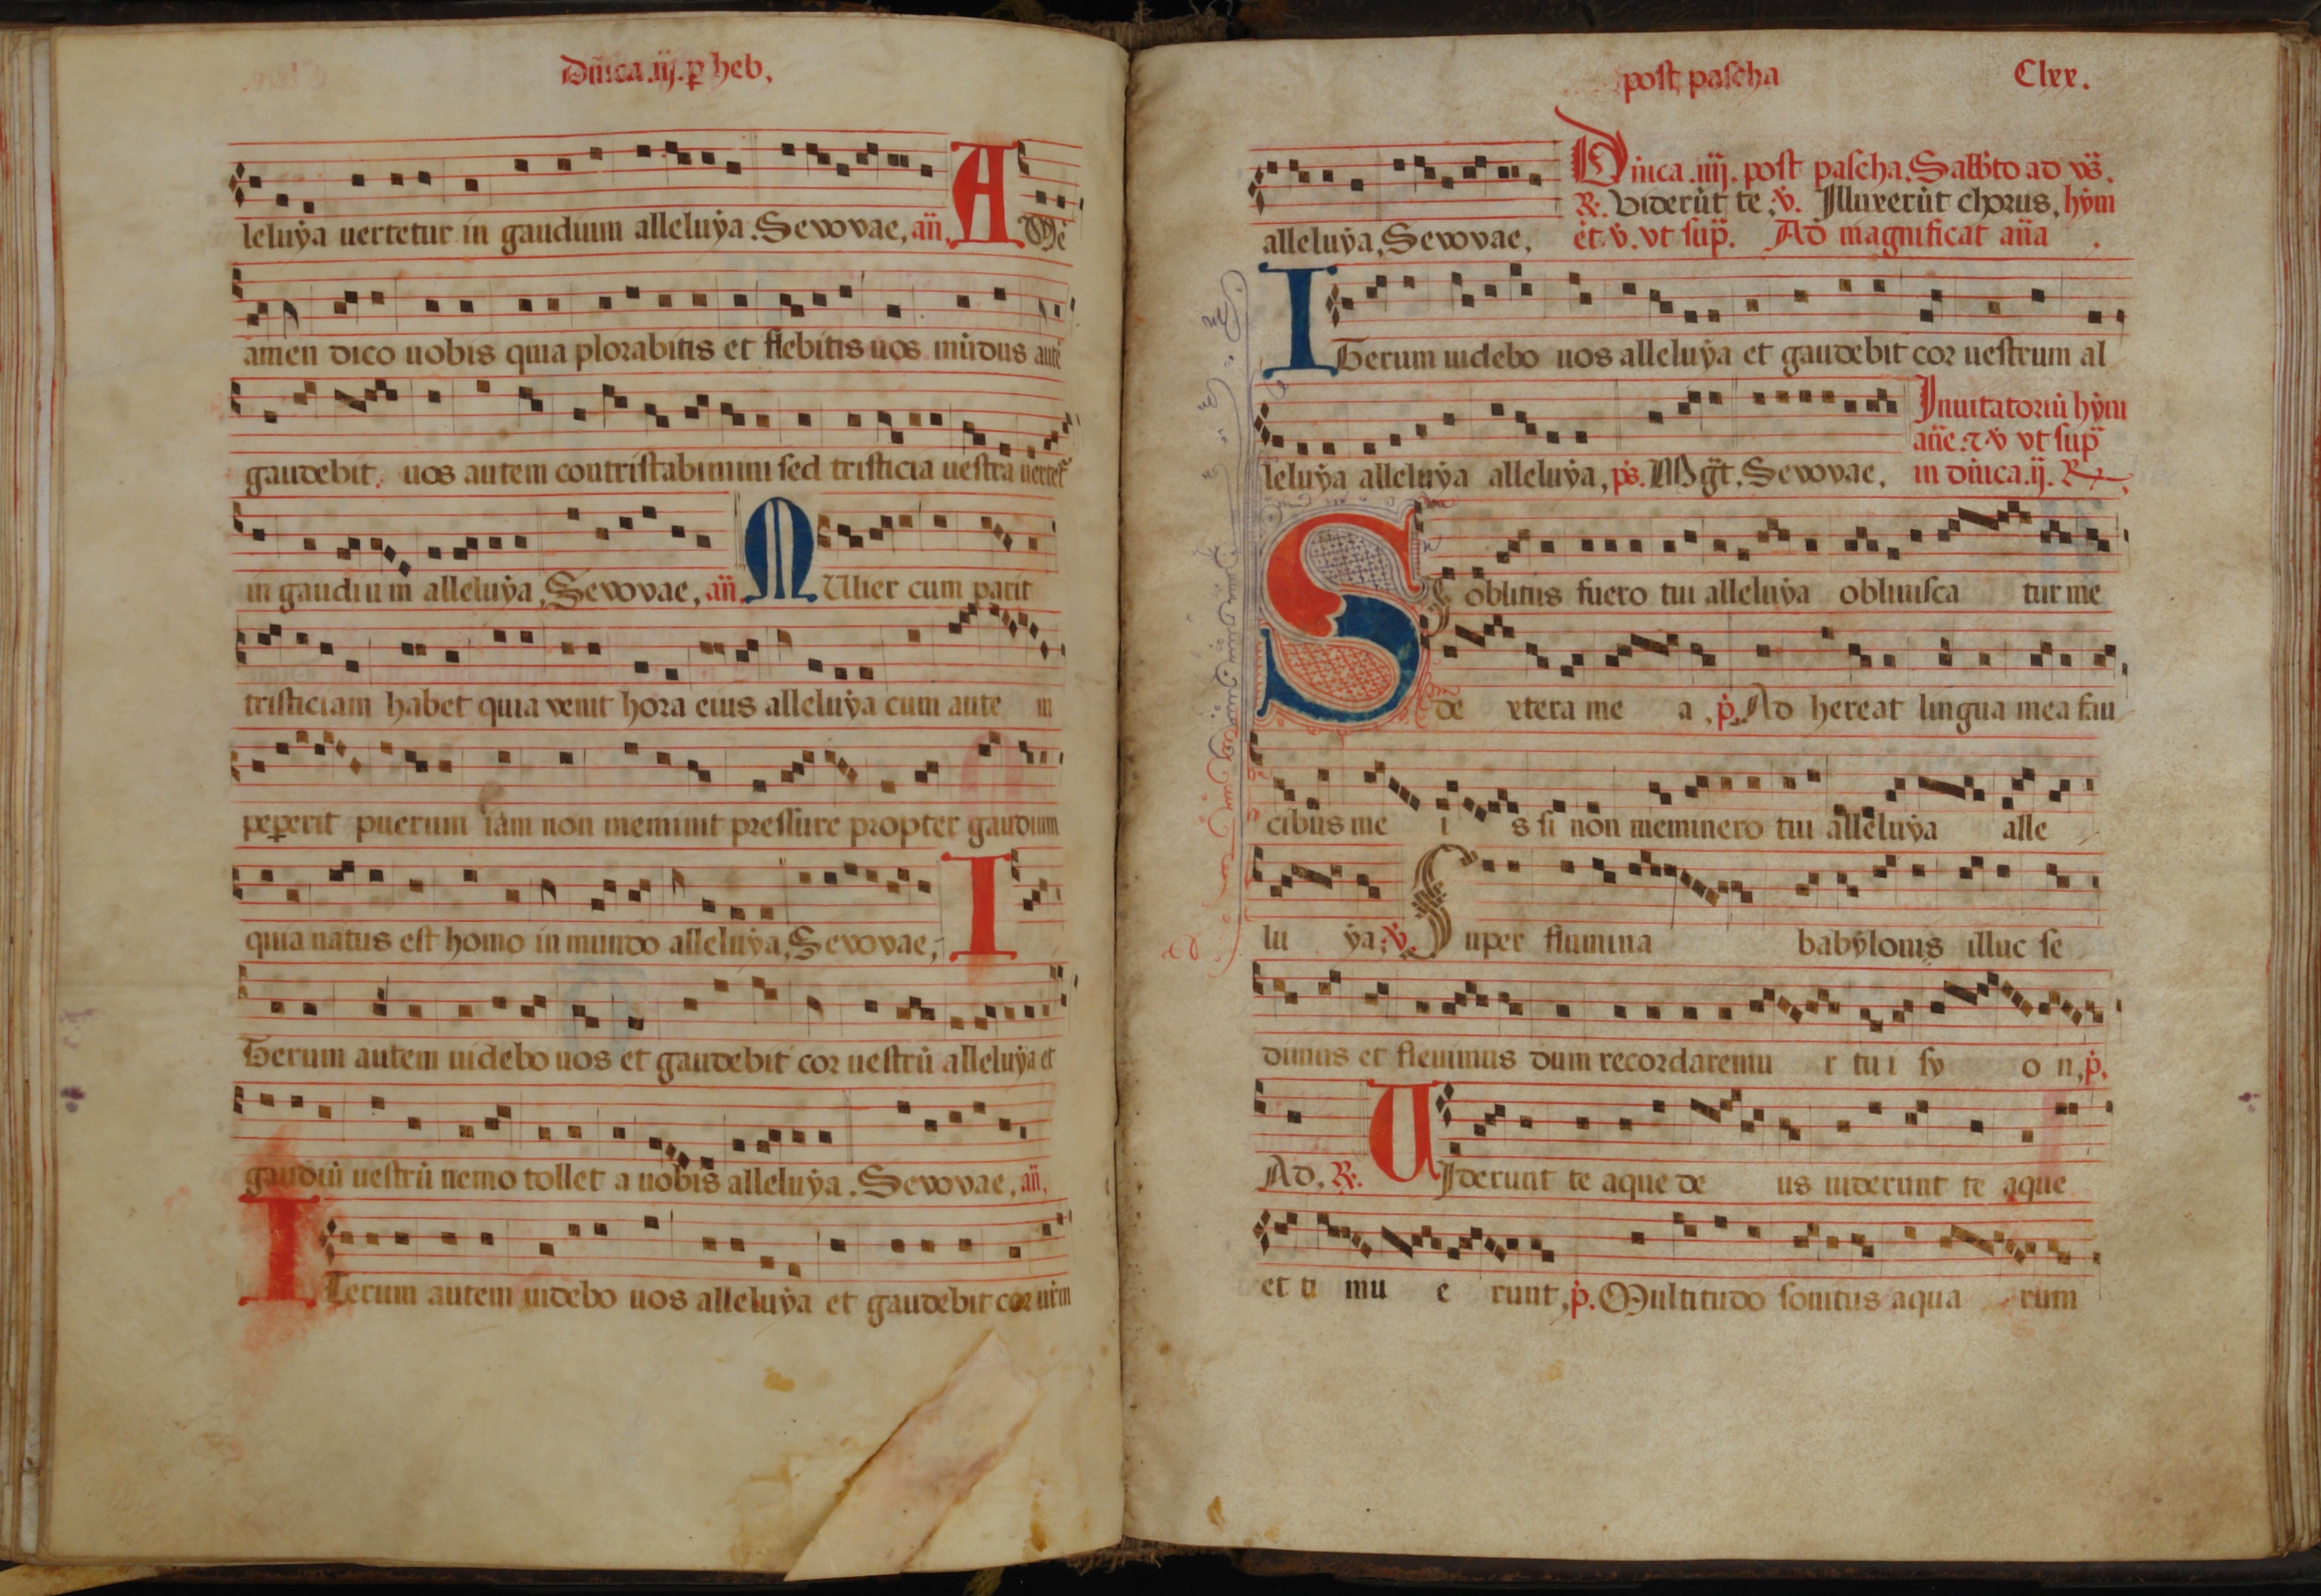 Dñica .iij. p heb.
leluẏa uertetur in gaudium alleluẏa. Sevovae, añ. A Mē
amen dico uobis quia plorabitis et flebitis uos mūdus autē
gaudebit. uos autem contristabimini sed tristicia uestra uertet̄
in gaudium alleluẏa. Sevovae, añ. MUlier cum parit
tristiciam habet quia venit hora eius alleluẏa cum aute m
pepererit puerum iam non meminit pressure propter gaudium
quia natus est homo in mundo alleluẏa, Sevovae, I
Terum autem uidebo uos et gaudebit cor uestrū alleluẏa et
gaudiū uestrū nemo tollet a uobis alleluẏa. Sevovae, añ.
ITerum autem uidebo uos alleluẏa et gaudebit cor urm
post pascha Clxx.
Dñica .iiij. post pascha. Sabbto ad vs̄.
R. Viderūt te. v. Illuxerūt chorus, hẏm
alleluẏa, Sevovae, et. v. vt sup̄. Ad magnificat aña
ITerum uidebo uos alleluẏa et gaudebit cor uestrum al
Inuitatoriū hẏm
añe. ⁊ v vt sup̄
leluẏa alleluẏa alleluẏa, ps. Mgt. Sevovae, in dñica .ij. R
SI oblitus fuero tui alleluẏa obliuisca tur me
de xtera me a, p. Ad hereat lingua mea fau
cibus me i s si non meminero tui alleluẏa alle
lu ẏa. v. Super flumina babẏlonis illuc se
dimus et fleuimus dum recordaremu r tu i sẏ o n, p.
Ad. R. UIderunt te aque de us uiderunt te aque
et ti mu e runt, p. Multitudo sonitus aqua rum